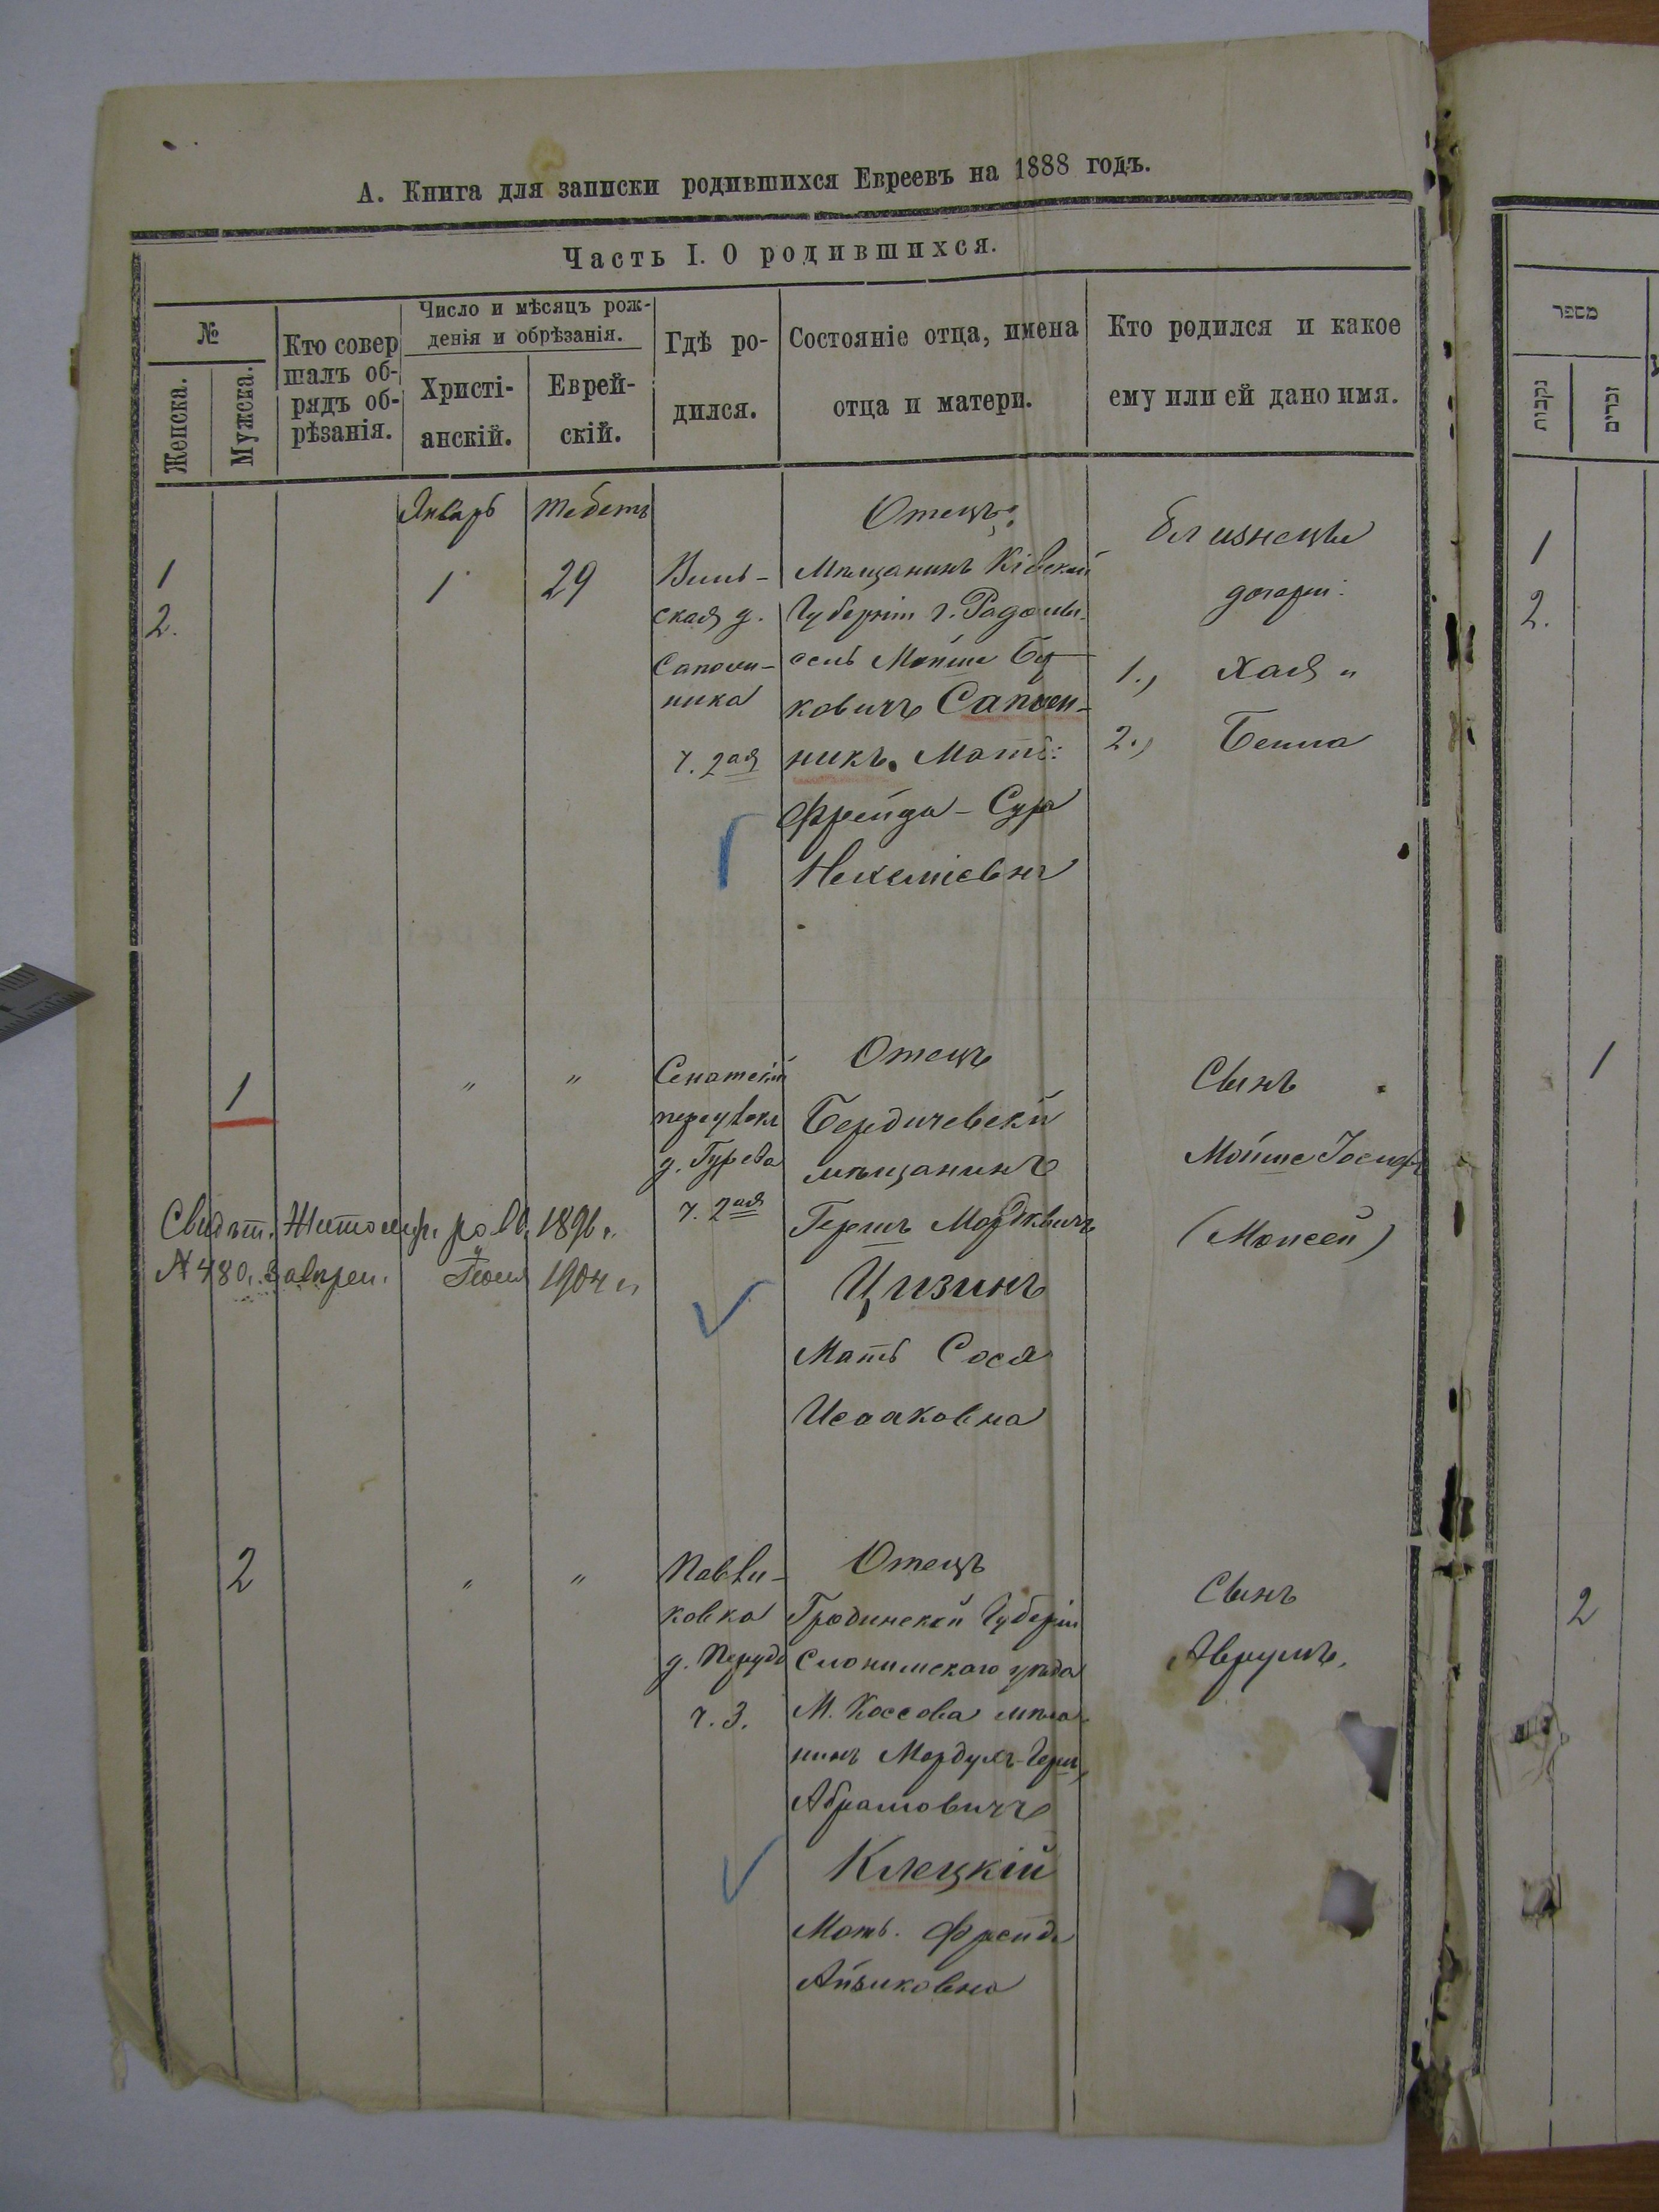 А. Книга для записки родившихся Евреевъ на 1888 годъ.
Часть I. О родившихся.
№
Женска.
Мужска.
Кто совер
шалъ об-
рядъ об-
рѣзанія.
Число и мѣсяцъ рож-
денія и обрѣзанія.
Христі-
анскій.
Еврей-
скій.
Гдѣ ро-
дился.
Состояніе отца, имена
отца и матери.
Кто родился и какое
ему или ей дано имя.
1
2.
Январь
1
Тебетъ
29
Виль-
ская д.
Сапож-
ника
ч. 2ая
Отецъ:
Мѣщанинъ Кіевской
Губерніи г. Радомы-
сель Мойше
ковичъ Сапож-
никъ. Мать:
Фрейда - Сура
Нехеміевна
близнецы
дочери:
1., Хая "
2., Бейла
1
"
"
Сенатскій
переулокъ
д. Гурева
ч. 2ая
Отецъ
Бердичевскій
мѣщанинъ
Гершъ Мордковичъ
Цизинъ
Мать Сося
Исааковна
Сынъ
Мойше Іосифъ
(Моисей)
Свидѣт. Житомір. 1896 г.
№ 480. Іюля 1904 г.
2
"
"
Павли-
ковка
д.
ч. 3.
Отецъ
Гродинской Губерніи
Слонимскаго уѣзда
М. Коссова мѣща-
нинъ Мордухъ-Гершъ
Абрамовичъ
Клецкій
Мать. Фрейда
Айзиковна
Сынъ
Аврумъ.
מספר
נקבות
זכרים
1
2.
1
2